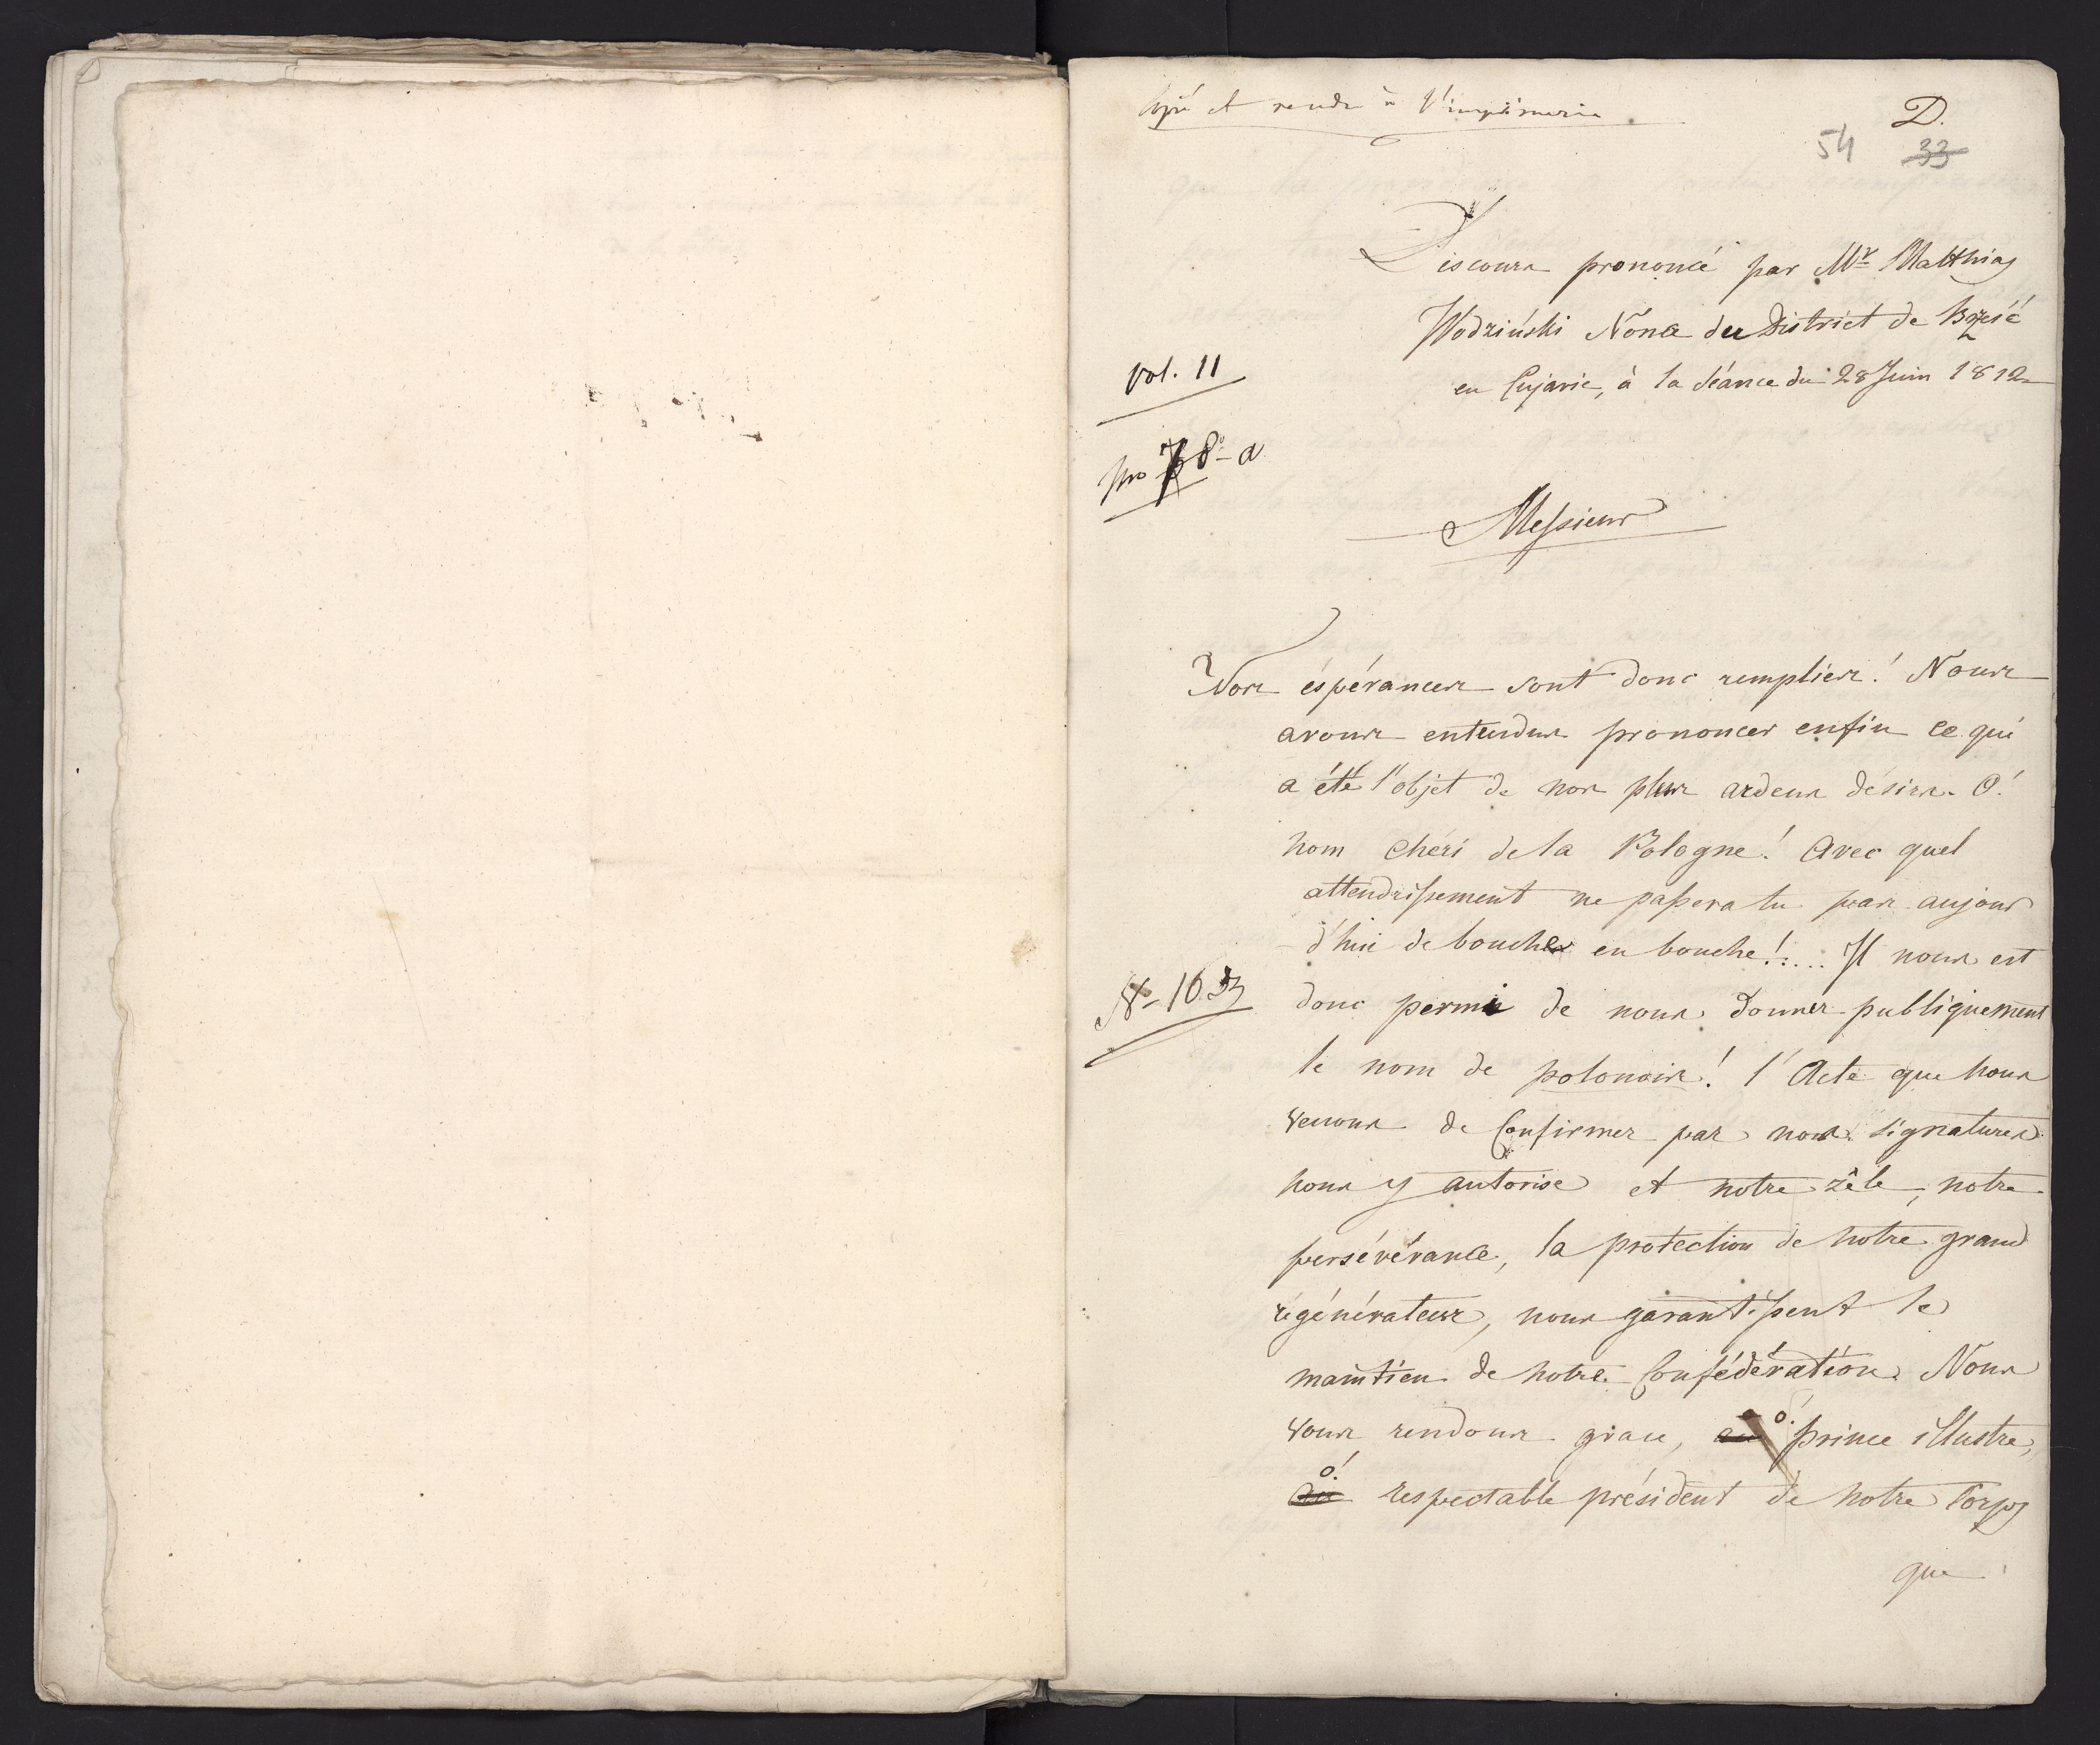 Copié et rendu à l'imprimerie.
D.
54 33
Discours prononcé par Mr Matthias
Wodziński Nonce du District de Brześć
en Cujavie, à la séance du 28 Juin 1812
vol. 11
no 78-a
Messieurs
Nos éspérances sont donc remplies! Nous
avons entendus prononcer enfin ce qui
a été l'objet de nos plus ardens désirs. O!
nom chéri de la Pologne! Avec quel
attendrissement ne passera tu pas aujour
d'hui de bouche en bouche!.... Il nous est
N- 163
donc permis de nous donner publiquement
le nom de polonois! l'Acte que nous
venons de Confirmer par nos signatures
nous y autorise et notre zêle, notre
persévérance, la protection de notre grand
régénérateur, nous garantissent le
maintien de notre Confédération. Nous
vous rendons grace, au o! prince illustre,
au o! respectable président de notre Corps
que